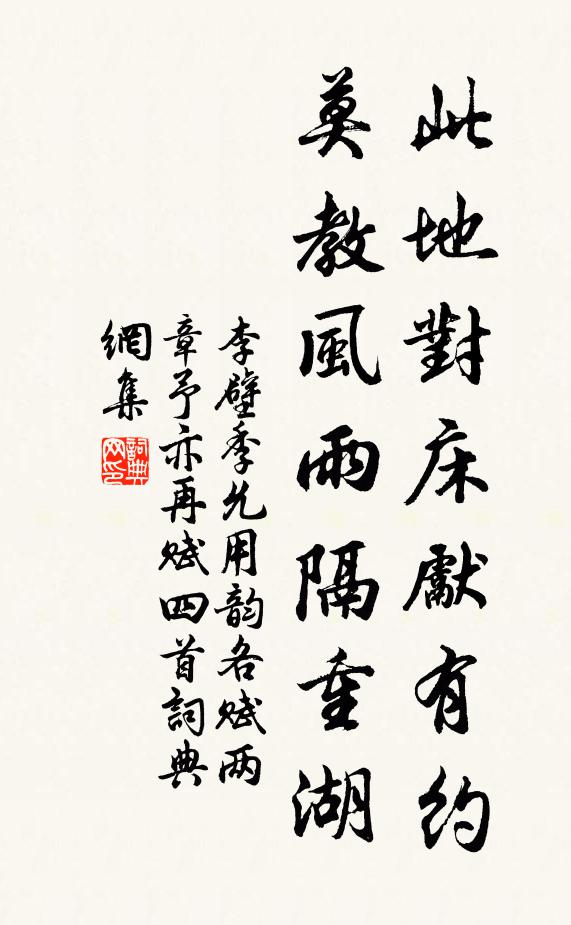 此地對床獻有約
莫教風雨隔重湖
李壁季允用韵各賦两
章予亦再賦四首詞典
網集
詞典網印